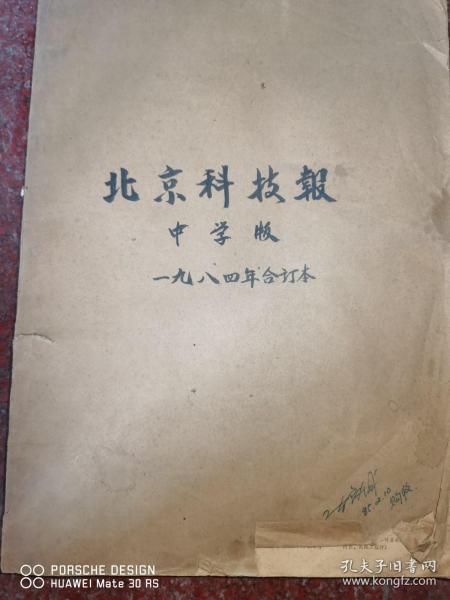 北京科技報
中学版
一九八四年合订本
85.2.10
购
PORSCHE DESIGN
HUAWEI Mate 30 RS
孔夫子旧书网
www.kongfz.com